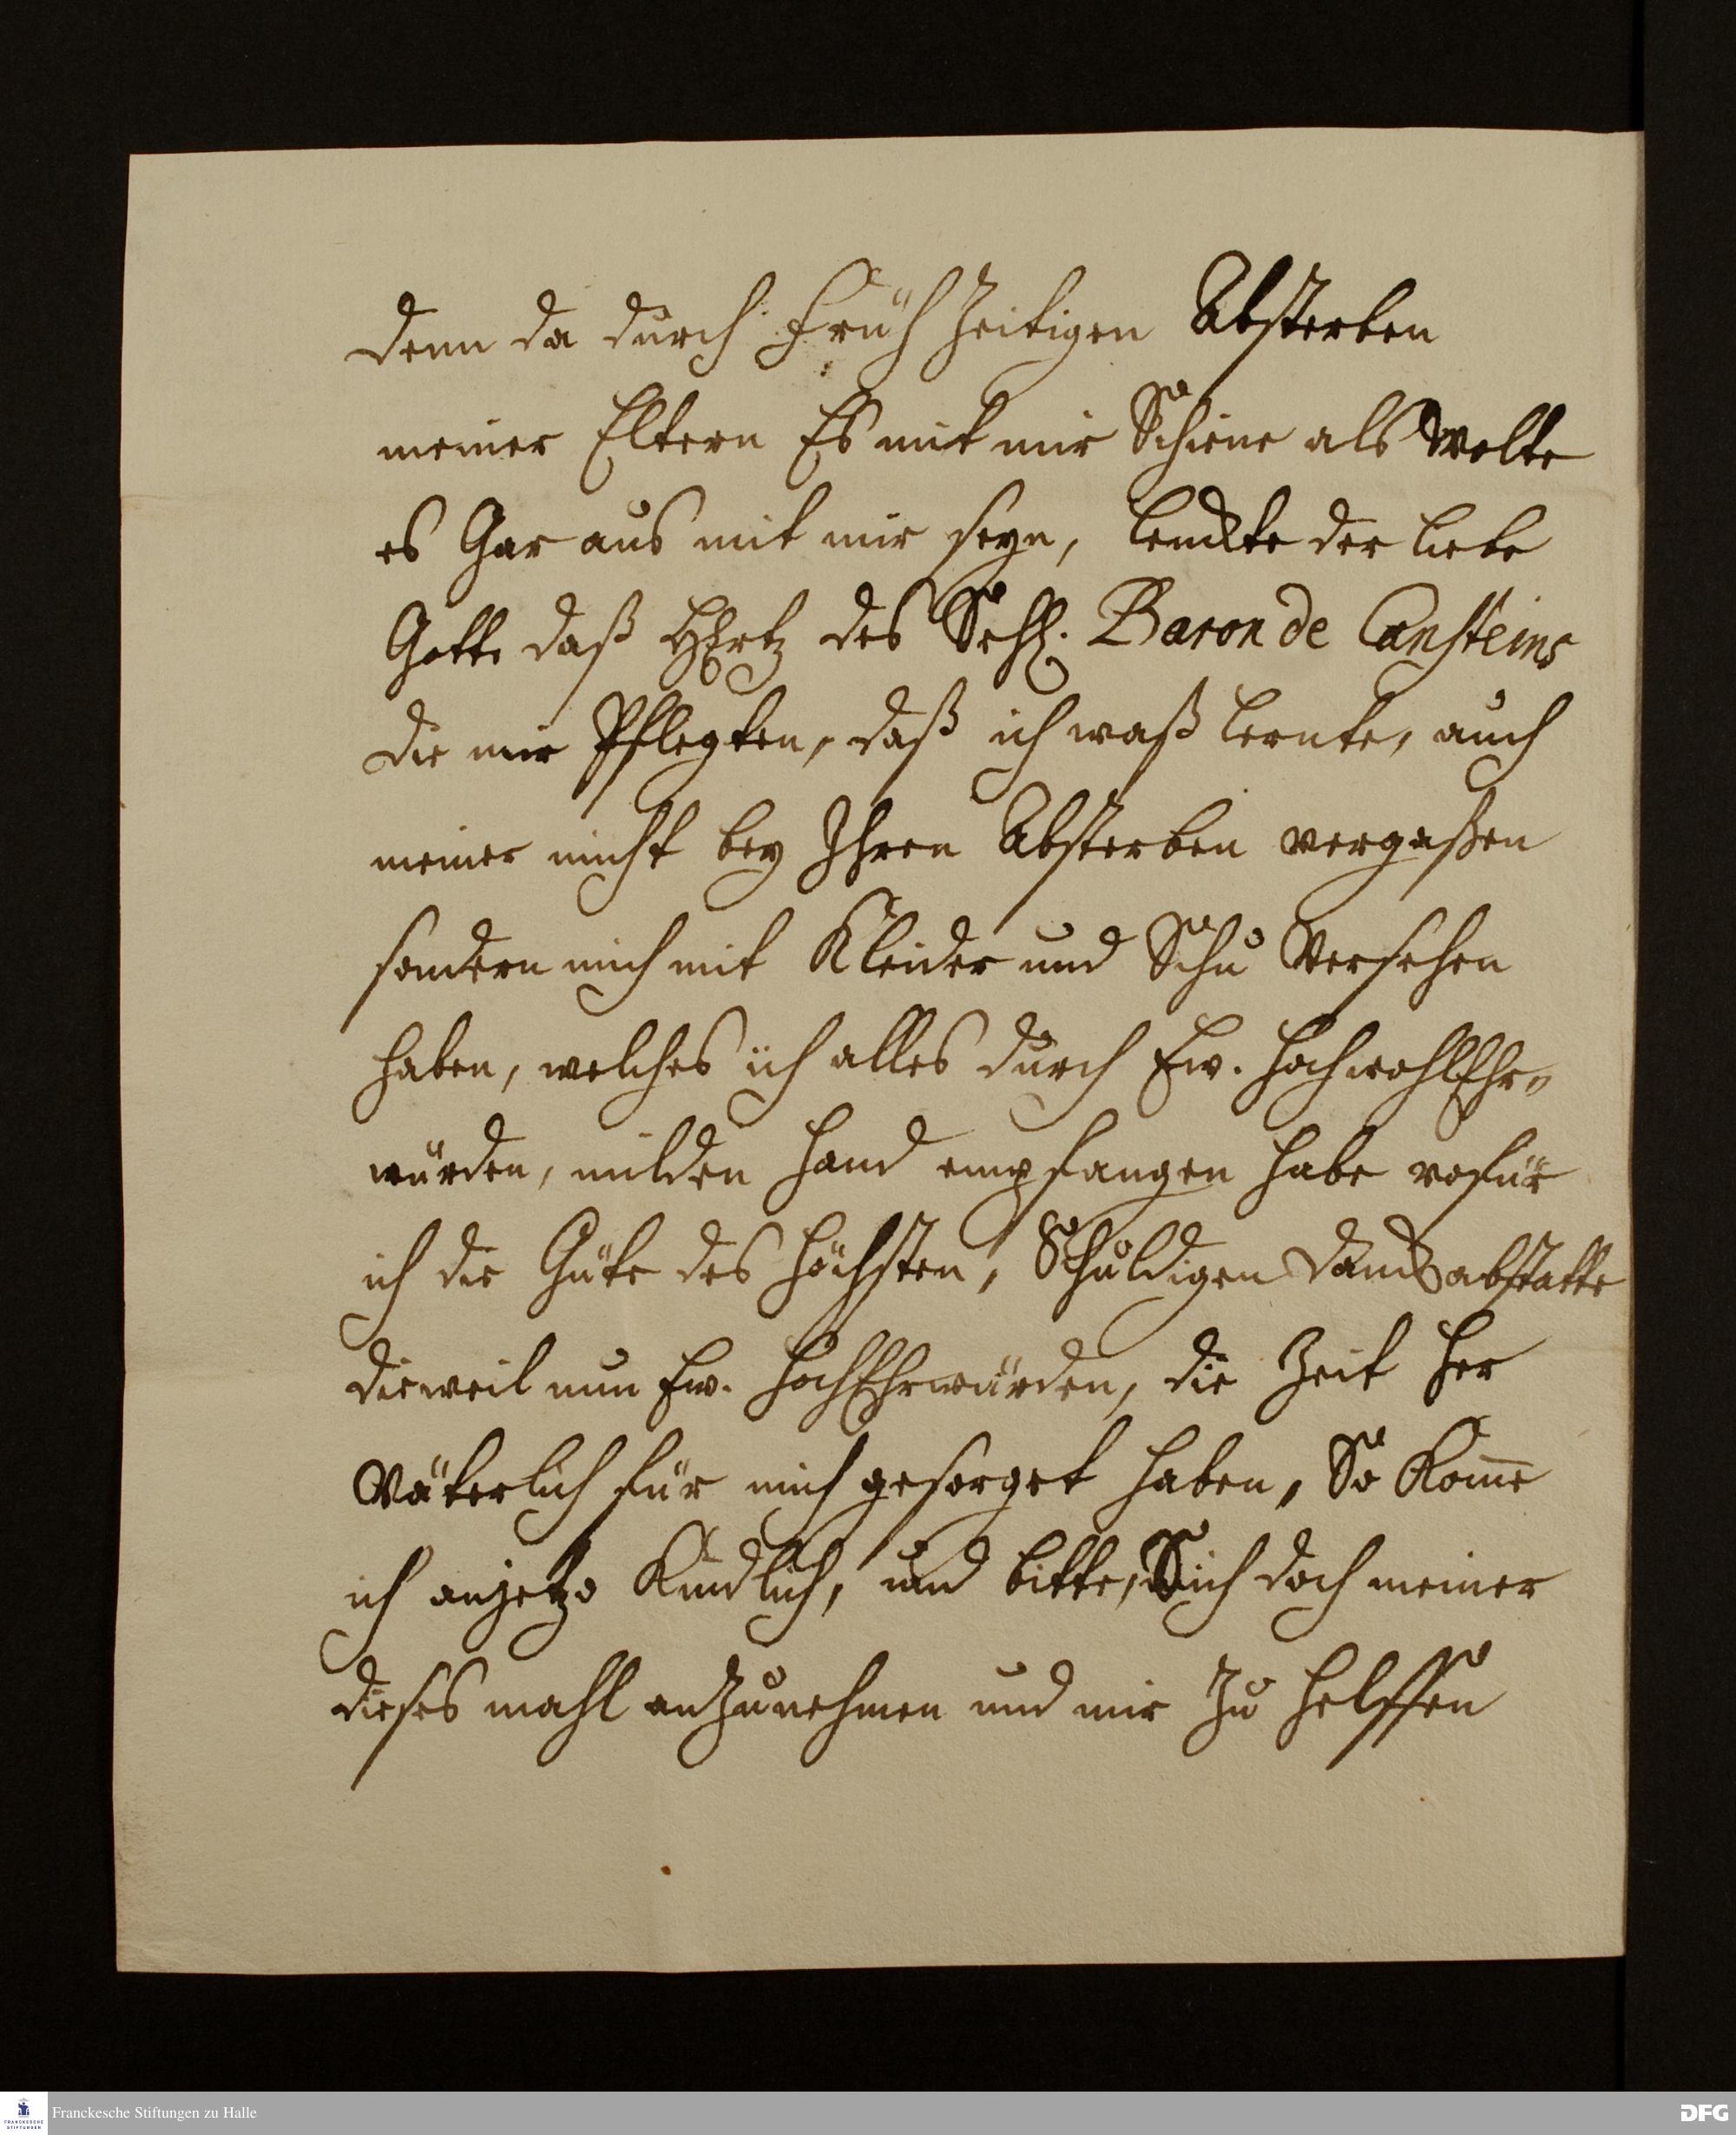 denn da durch Früh Zeitigen Absterben
meiner Eltern Es mit mir Schiene als Wolte
es Gar aus mit mir seyn, lenckte der liebe
Gott daß HErtz des Sehl. Baron de Cansteins
die mir Pflegten, daß ich waß lernte, auch
meiner nicht bey Ihren Absterben vergaßen
sondern mich mit Kleider und Schu Versehen
haben, welches ich alles durch Ew. HochwohlEhr„
würden, milden Hand empfangen habe vofür
ich die Güte des Höchsten, Schuldigen Danck abstatte
dieweil nun Ew. HochEhrwürden, die Zeit her
Väterlich für mich gesorget haben, So Kom̄e
ich anjetzo Kindlich, und bitte, Sich doch meiner
dieses mahl anZunehmen und mir Zu helffen
Franckesche Stiftungen zu Halle
FRANCKESCHE STIFTUNGEN
DFG